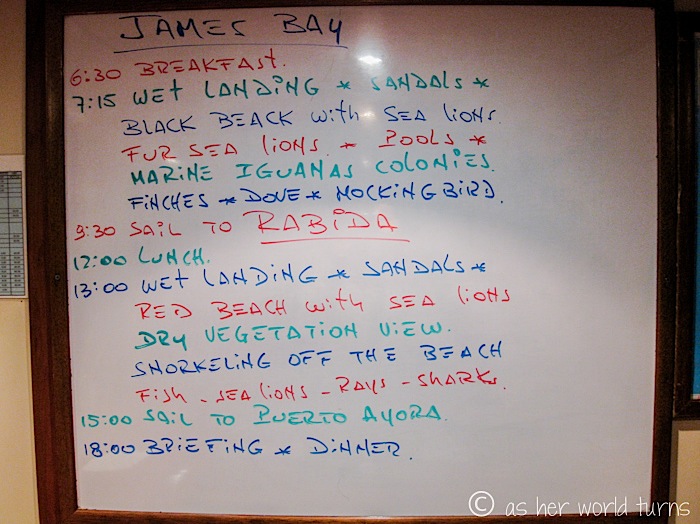 JAMES BAY
6:30 BREAKFAST.
7:15 WET LANDING * SANDALS *
BLACK BEACK with SEA lioNS.
FUR SEA lioNS. * POOLS *
MARINE IGUANAS COLONiES.
FiNCHES * DOVE * MOCKiNGBiRD.
9:30 SAiL TO RABiDA
12:00 LUNCH.
13:00 WET LANDiNG * SANDALS *
RED BEACH with SEA lioNS
DRY VEGETATION ViEW.
SNORKELING OFF THE BEACH
Fish - SEA lioNS - RAYS - SHARKS.
15:00 SAiL TO PUERTO AYORA.
18:00 BRiEFiNG * DiNNER.
© as her world turns